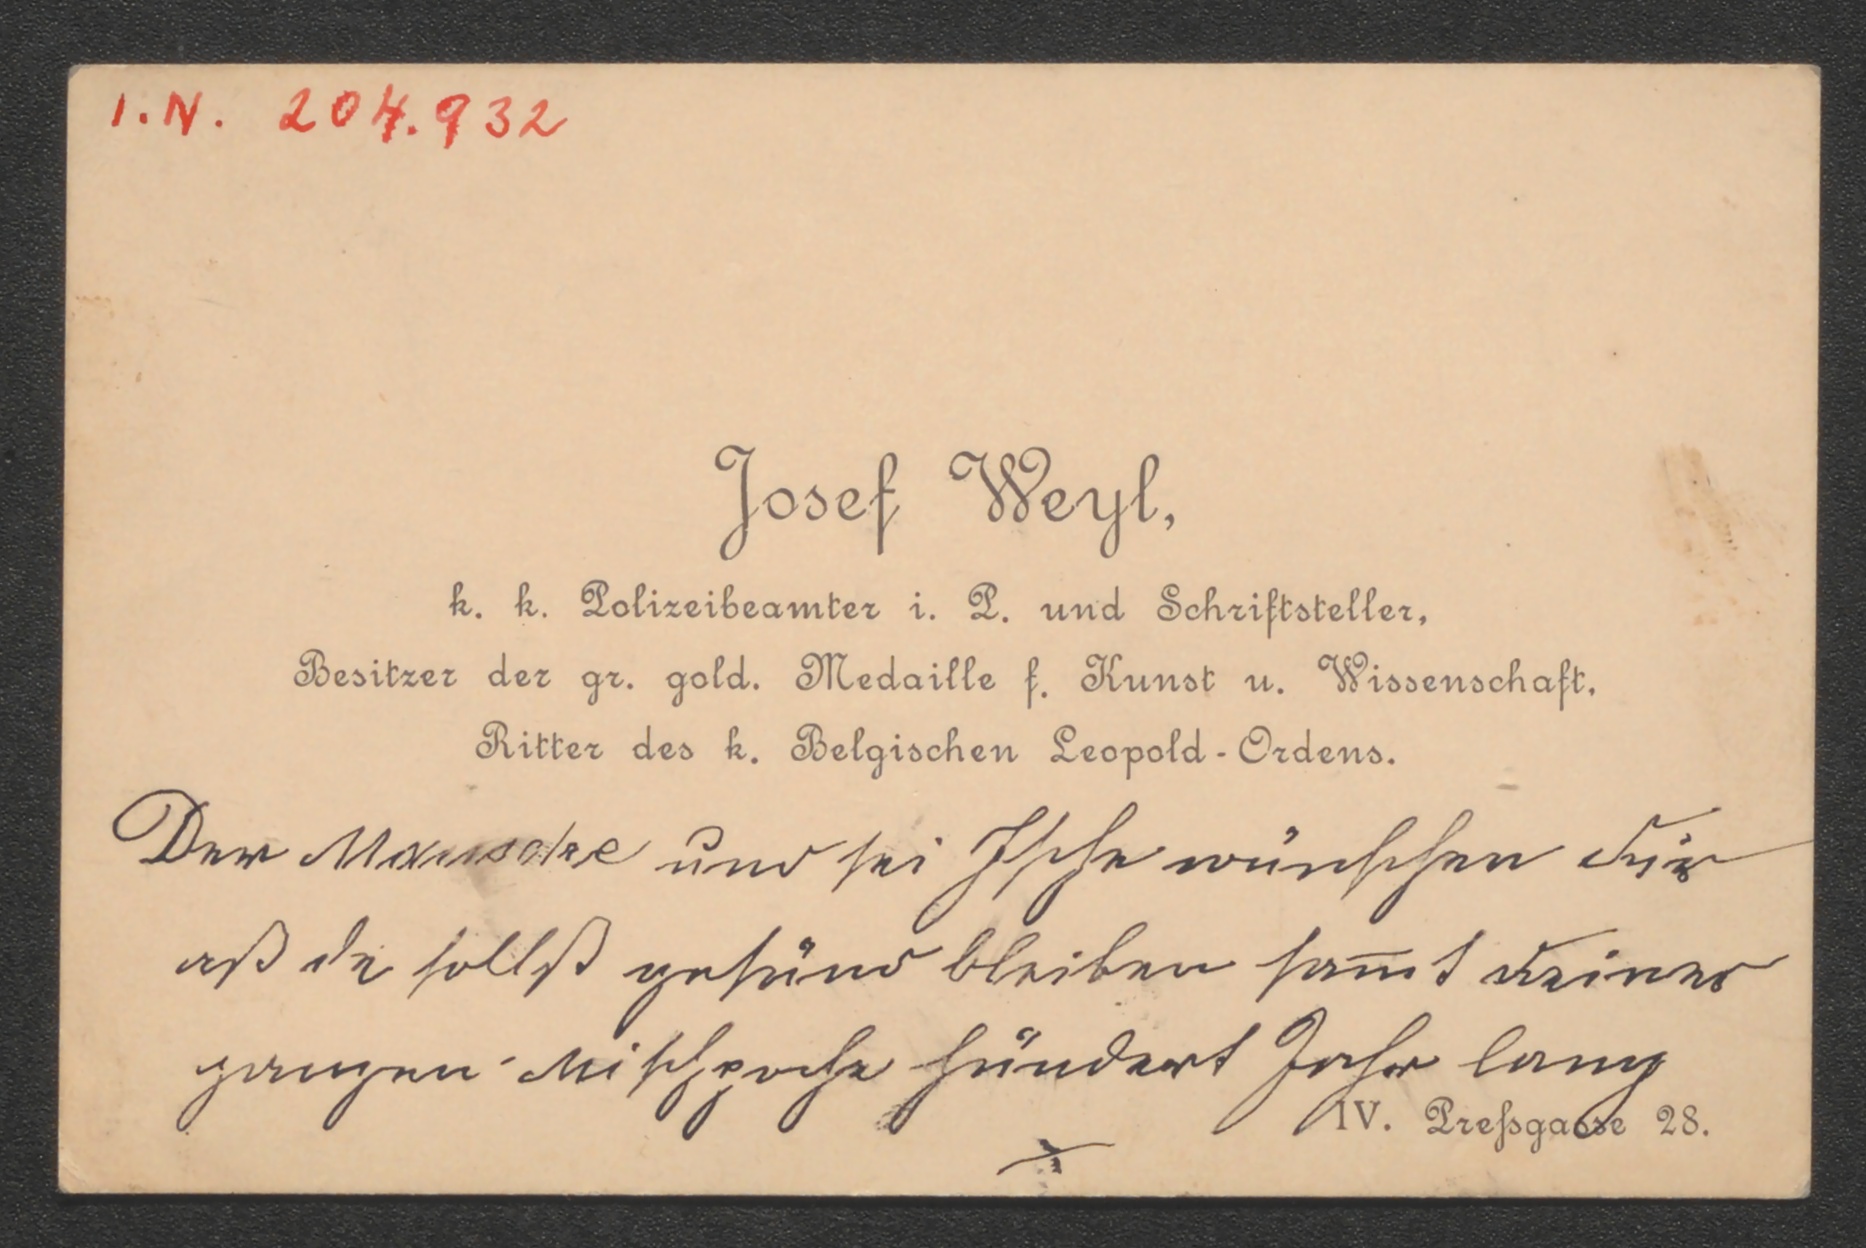 I.N. 204.932
Josef Weyl,
k. k. Polizeibeamter i. P. und Schriftsteller,
Besitzer der gr. gold. Medaille f. Kunst u. Wissenschaft,
Ritter des k. Belgischen Leopold-Ordens.
Der Mauschke und sei Ische wünschen Dir
aß de sollst gesund bleiben sam̅t Deiner
ganzen Mischpoche hundert Jahr lang
IV. Preßgasse 28.